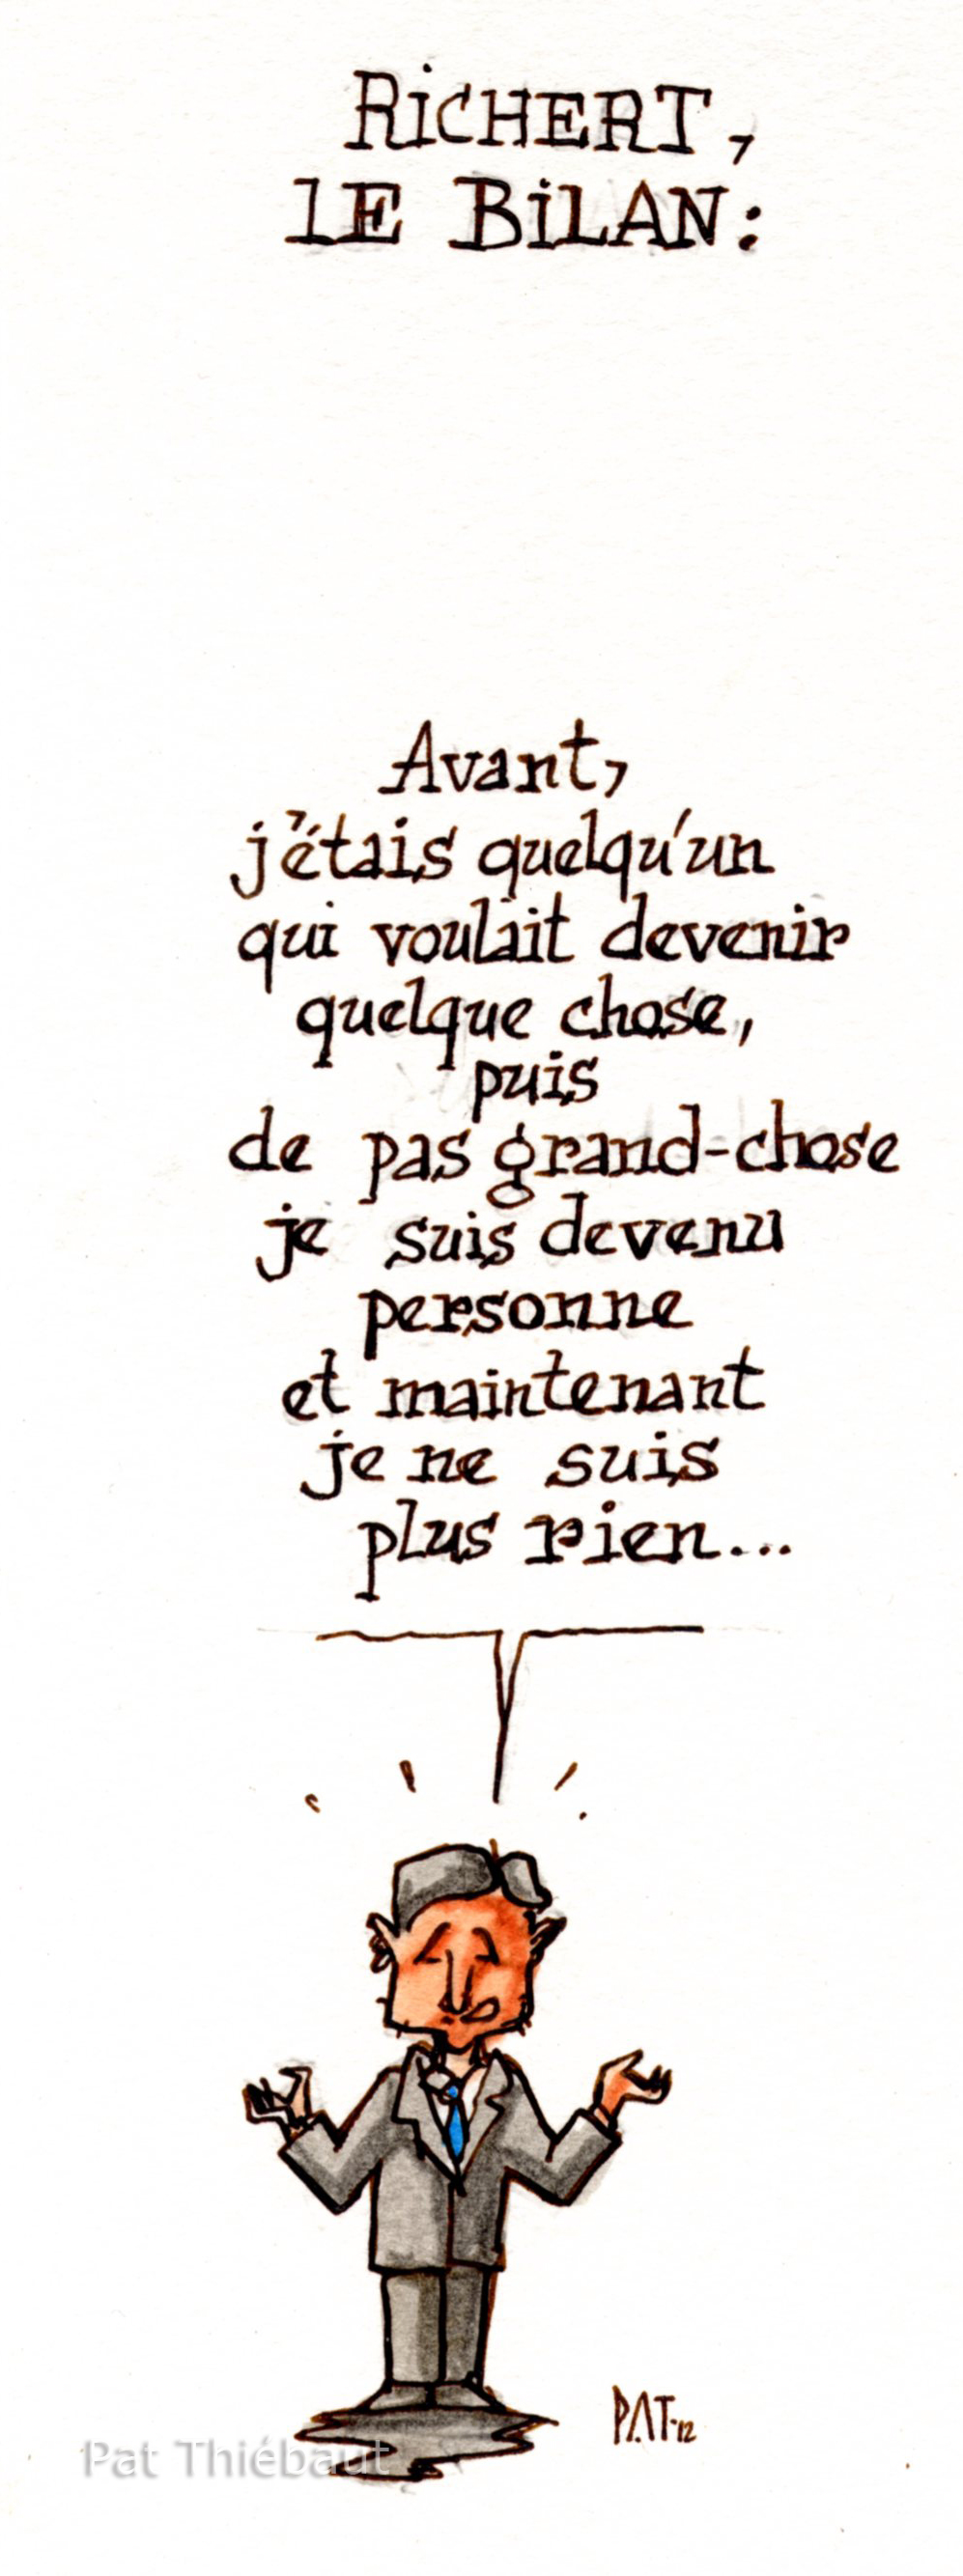 RiCHERT,
lE BiLAN:
Avant,
j'étais quelqu'un
qui voulait devenir
quelque chose,
puis
de pas grand-chose
je suis devenu
personne
et maintenant
je ne suis
plus rien...
PAT-12
Pat Thiébaut